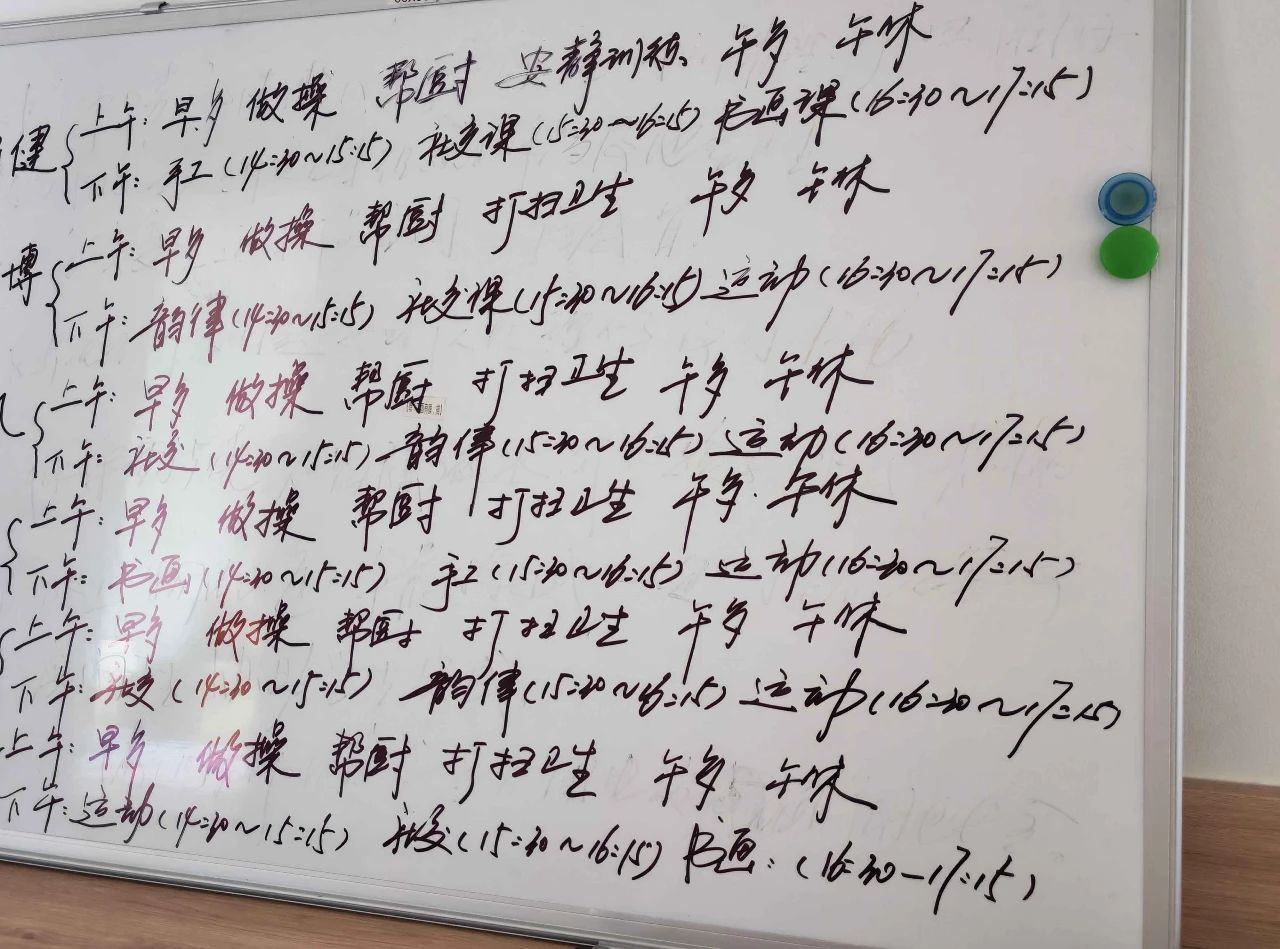 健 上午: 早多 做操 帮厨 安静训练、午多 午休
下午: 手工 (14:30~15:15) 社交课 (15:30~16:15) 书画课 (16:30~17:15)
博 上午: 早多 做操 帮厨 打扫卫生 午多 午休
下午: 韵律 (14:30~15:15) 社交课 (15:30~16:15) 运动 (16:30~17:15)
上午: 早多 做操 帮厨 打扫卫生 午多 午休
下午: 社交 (14:30~15:15) 韵律 (15:30~16:15) 运动 (16:30~17:15)
上午: 早多 做操 帮厨 打扫卫生 午多 午休
下午: 书画 (14:30~15:15) 手工 (15:30~16:15) 运动 (16:30~17:15)
上午: 早多 做操 帮厨 打扫卫生 午多 午休
下午: 社交 (14:30~15:15) 韵律 (15:30~16:15) 运动 (16:30~17:15)
上午: 早多 做操 帮厨 打扫卫生 午多 午休
下午: 运动 (14:30~15:15) 社交 (15:30~16:15) 书画: (16:30-17:15)